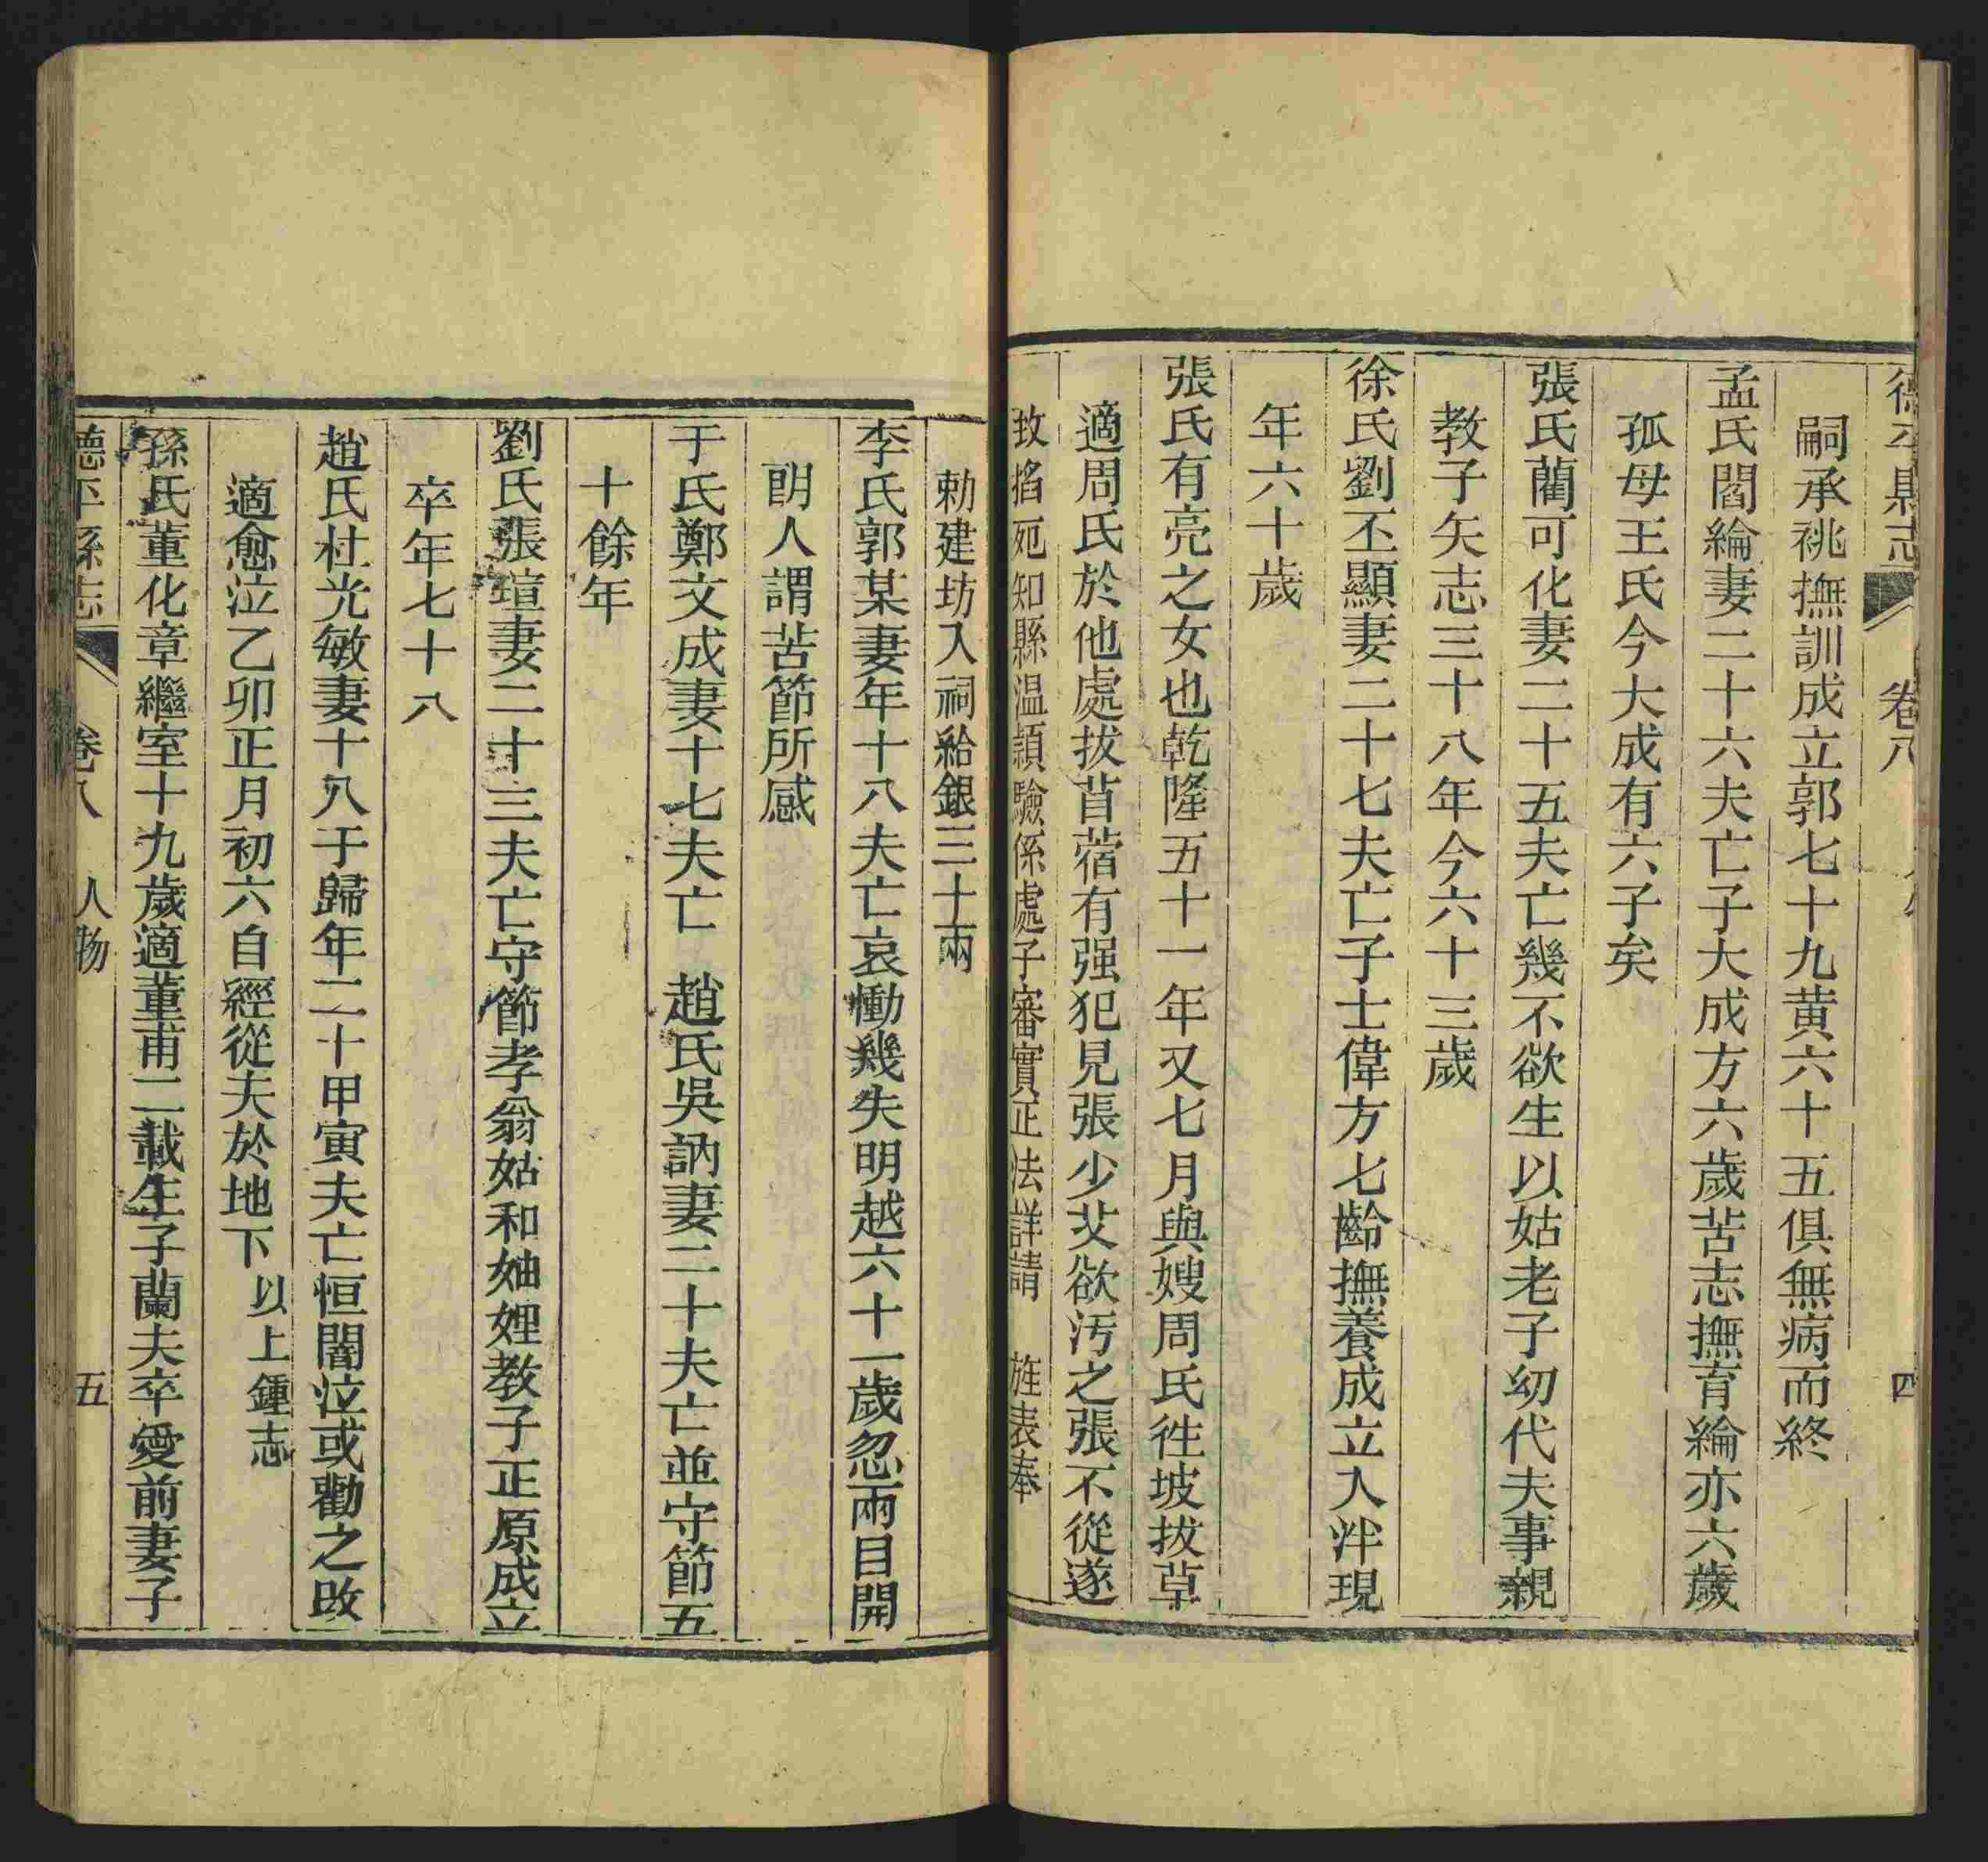 德平縣志 卷八 四
嗣承祧撫訓成立郭七十九黄六十五俱無病而終
孟氏閻綸妻二十六夫亡子大成方六歲苦志撫育綸亦六歲
孤母王氏今大成有六子矣
張氏藺可化妻二十五夫亡幾不欲生以姑老子幼代夫事親
教子矢志三十八年今六十三歲
徐氏劉丕顯妻二十七夫亡子士偉方七齡撫養成立入泮現
年六十歲
張氏有亮之女也乾隆五十一年又七月與嫂周氏徃坡拔草
適周氏於他處拔苜蓿有强犯見張少艾欲汚之張不從遂
致搯死知縣温頴驗係處子審實正法詳請 旌表奉
勅建坊入祠給銀三十兩
李氏郭某妻年十八夫亡哀慟幾失明越六十一歲忽兩目開
朗人謂苦節所感
于氏鄭文成妻十七夫亡 趙氏吳訥妻二十夫亡並守節五
十餘年
劉氏張瑄妻二十三夫亡守節孝翁姑和妯娌教子正原成立
卒年七十八
趙氏杜光敏妻十八于歸年二十甲寅夫亡恒闇泣或勸之改
適愈泣乙卯正月初六自經從夫於地下 以上鍾志
孫氏董化章繼室十九歲適董甫二載生子蘭夫卒愛前妻子
德平縣志 卷八 人物 五